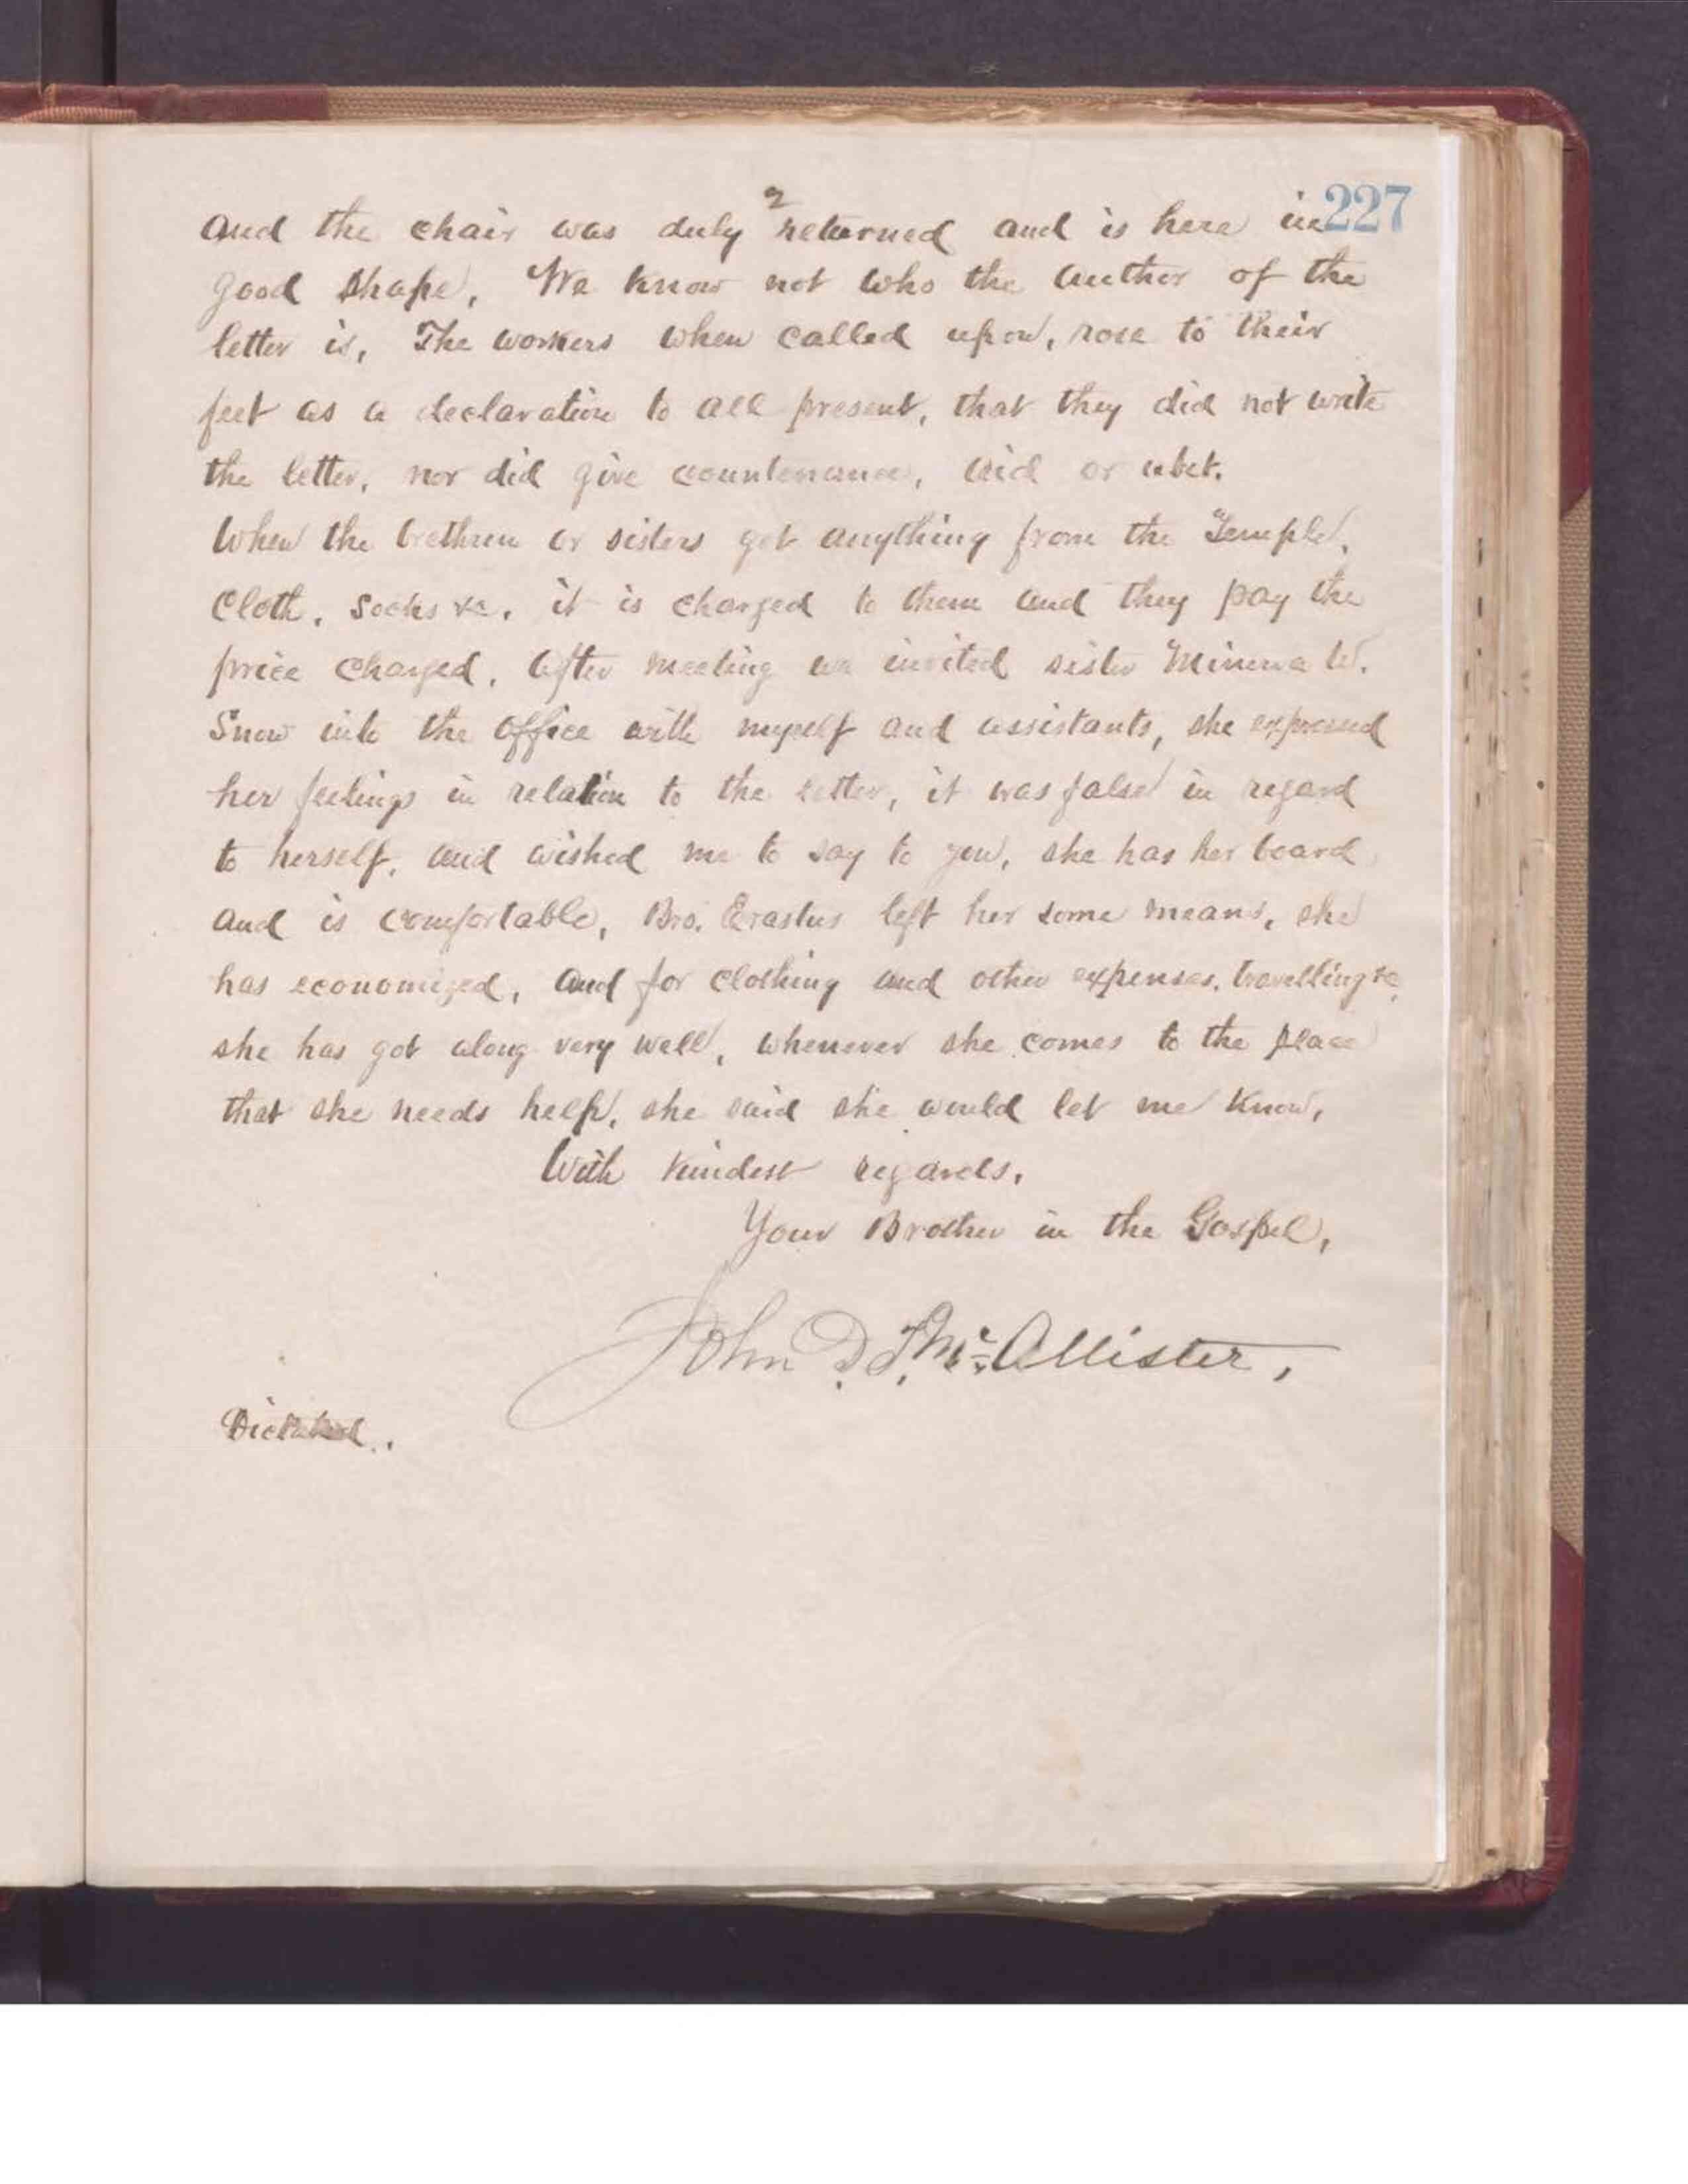 2
227
and the chair was duly returned and is here in
good shape, We know not who the author of the
letter is, The workers when called upon, rose to their
feet as a declaration to all present, that they did not write
the letter, nor did give countenance, aid or abet.
When the brethren or sisters get anything from the Temple,
Cloth, Socks &c, it is charged to them and they pay the
price charged, After meeting we invited sister Minerva W.
Snow into the office with myself and assistants, she expressed
her feelings in relation to the letter, it was false in regard
to herself, and wished me to say to you, she has her board,
and is comfortable, Bro. Erastus left her some means, she
has economized, and for clothing and other expenses, travelling &c,
she has got along very well, whenever she comes to the place
that she needs help, she said she would let me know,
With kindest regards,
Your Brother in the Gospel,
John D. T. McAllister,
Dictated.